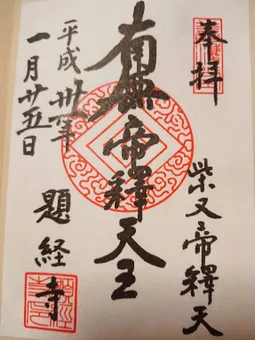 奉拝
柴又帝釋天
南無帝釋天王
平成丗一年
一月廿五日
題経寺